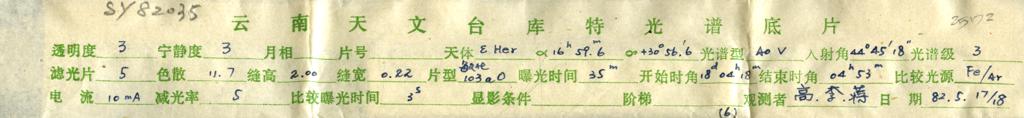 SY82035
云南天文台库特光谱底片
透明度 3 宁静度 3 月相 片号 天体 ε Her α 16h 59.m6 α +30° 56.'6 光谱型 A0V 入射角 44°45'18" 光谱级 3
滤光片 5 色散 11.7 缝高 2.00 缝宽 0.22 片型 敏化 103aO 曝光时间 35m 开始时角 18d 04h 18m 结束时角 04h 53m 比较光源 Fe/Ar
电流 10mA 减光率 5 比较曝光时间 3s 显影条件 阶梯 (6) 观测者 高.李.蒋 日期 82.5.17/18